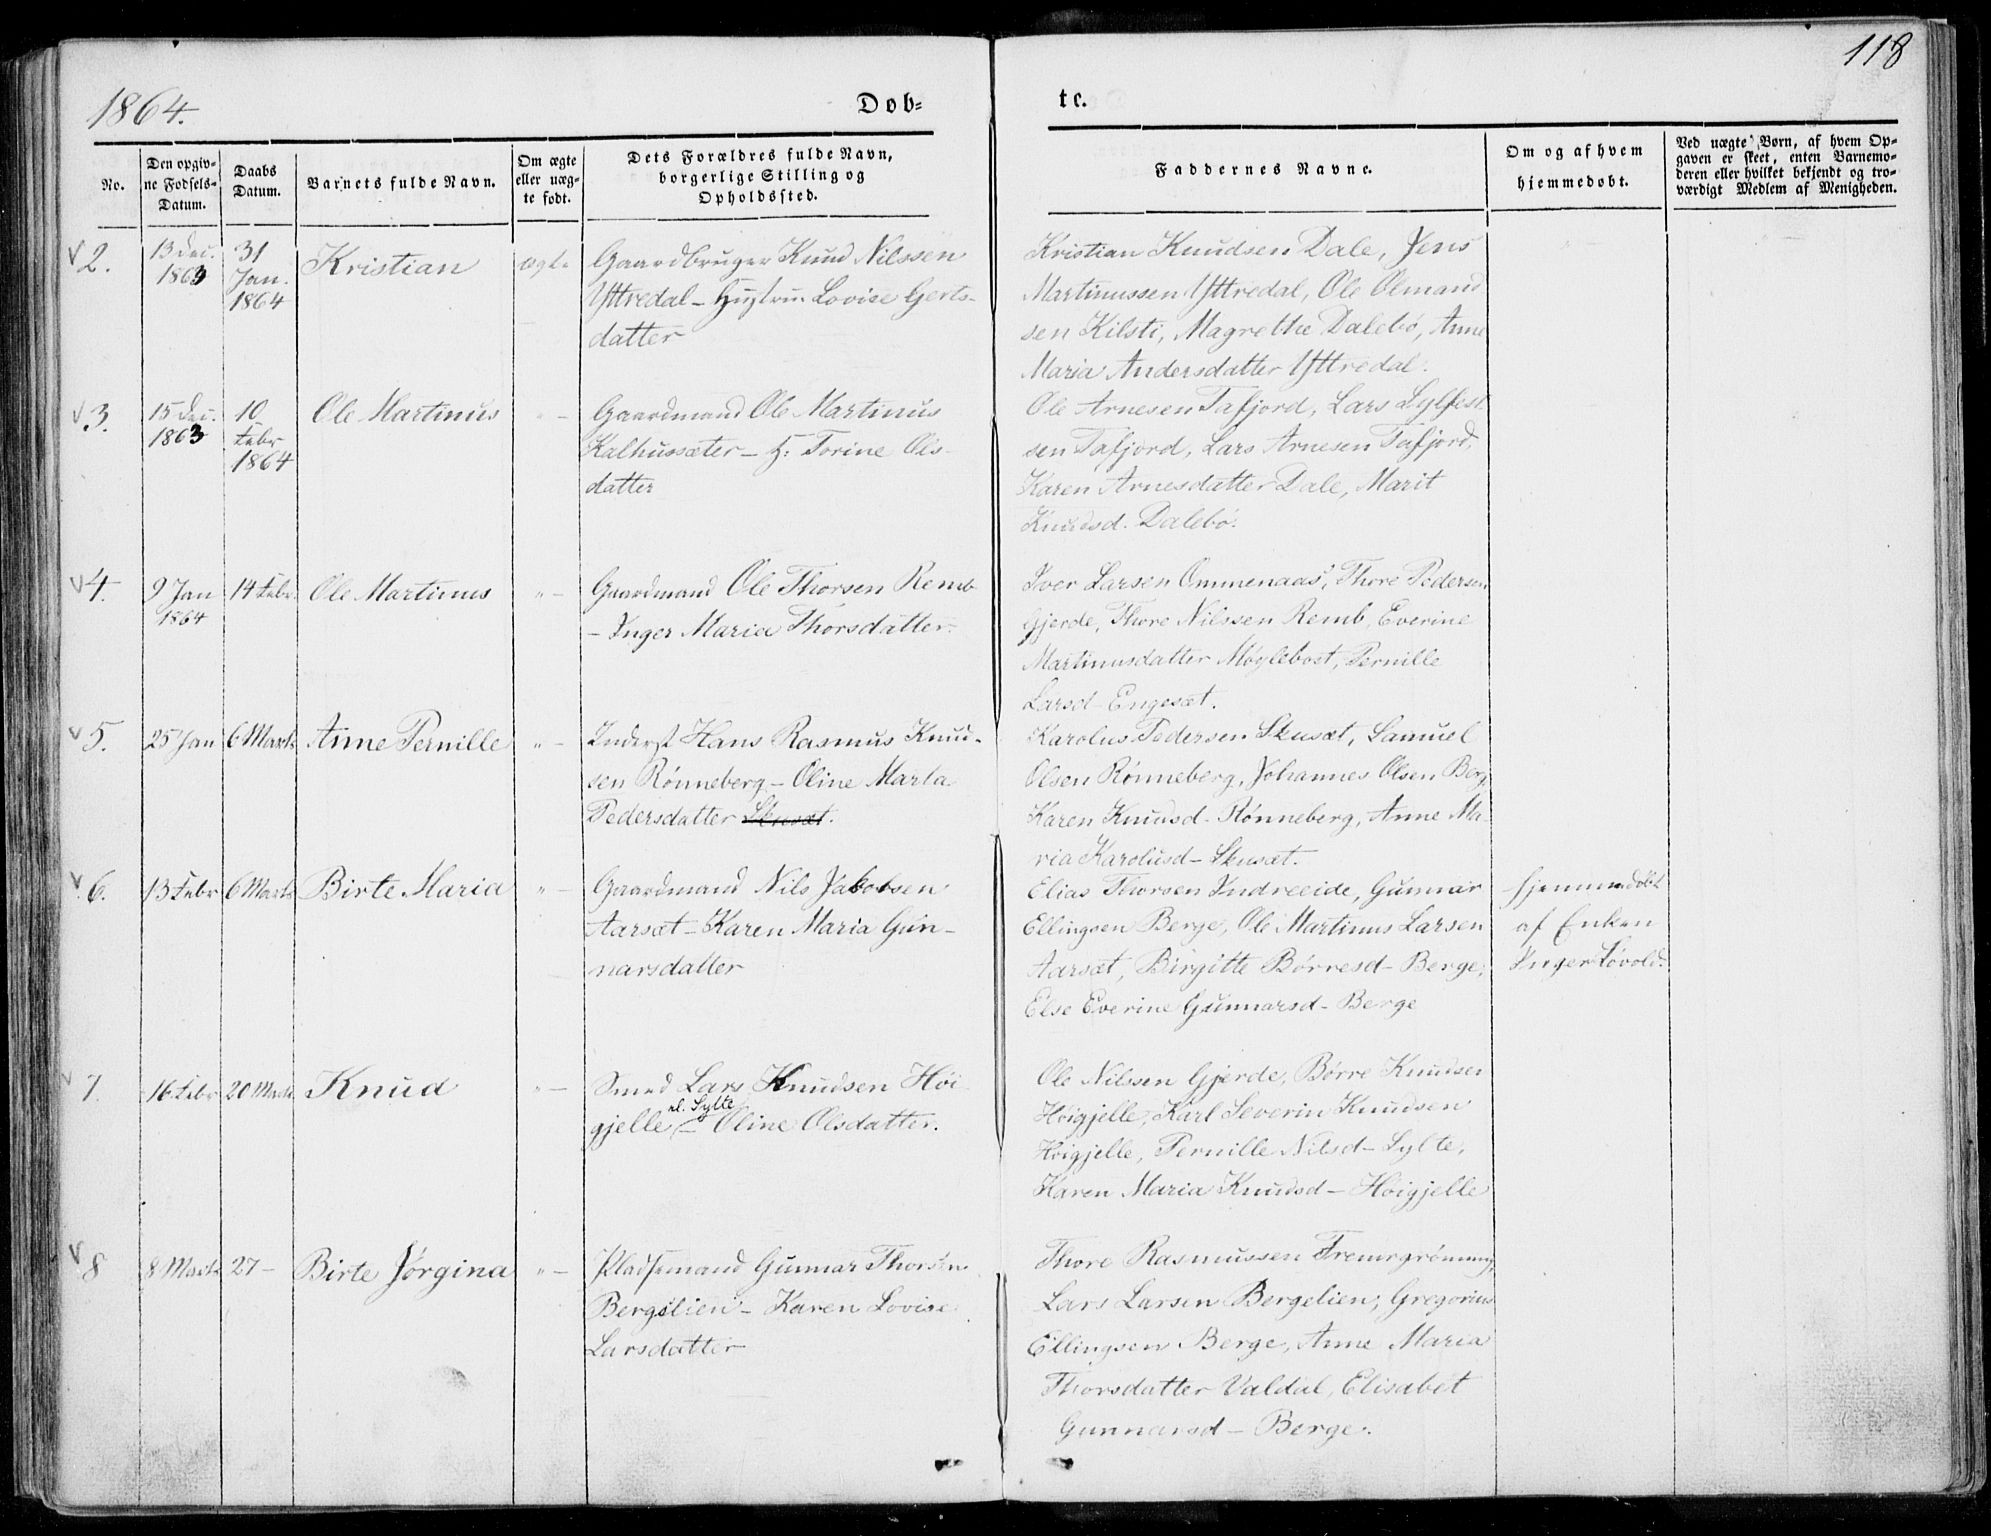 118
1864.
Døb=
te.
No.
Den opgiv-
ne Fødsels-
Datum.
Daabs
Datum.
Barnets fulde Navn.
Om ægte
eller uæg-
te født.
Dets Forældres fulde Navn,
borgerlige Stilling og
Opholdssted.
Faddernes Navne.
Om og af hvem
hjemmedøbt.
Ved uægte Børn, af hvem Op-
gaven er skeet, enten Barnemo-
deren eller hvilket bekjendt og tro-
værdigt Medlem af Menigheden.
2.
13 Dec.
1863
31
Jan.
1864
Kristian
ægte
Gaardbruger Knud Nilssen
Yttredal – Hustru Lovise Gerts-
datter
Kristian Knudsen Dale, Jens
Martinussen Yttredal, Ole Olmand
sen Kilsti, Magrethe Dalebø, Anne
Maria Andersdatter Yttredal.
3.
15 Dec.
1863
10
Febr
1864
Ole Martinus
" –
Gaardmand Ole Martinus
Kalhussæter – H: Torine Ols-
datter
Ole Arnesen Tafjord, Lars Sylfest
sen Tafjord, Lars Arnesen Tafjord,
Karen Arnesdatter Dale, Marit
Knudsd. Dalebø.
4.
9 Jan
1864
14 Febr.
Ole Martinus
" –
Gaardmand Ole Thorsen Remb
– Inger Maria Thorsdatter.
Iver Larsen Ommenaas, Thore Pedersen
Gjerde, Thore Nilssen Remb, Everine
Martinusdatter Møglebost, Pernille
Larsd – Engeset.
5.
25 Jan
6 Marts
Anne Pernille
" –
Inderst Hans Rasmus Knud-
sen Rønneberg – Oline Marta
Pedersdatter Skusæt.
Karolus Pedersen Skusæt, Samuel
Olsen Rønneberg, Johannes Olsen Berg,
Karen Knudsd – Rønneberg, Anne Ma-
ria Karolusd – Skusæt.
6.
13 Febr
6 Marts
Birte Maria
" –
Gaardmand Nils Jakobsen
Aarsæt – Karen Maria Gun-
narsdatter
Elias Thorsen Indreeide, Gunnar
Ellingsen Berge, Ole Martinus Larsen
Aarsæt, Birgitte Børresd – Berge,
Else Everine Gunnarsd – Berge
Hjemmedøbt
af Enken
Inger Løvold.
7.
16 Febr
20 Marts
Knud
" –
Smed Lars Knudsen Høi-
gjelle – Oline Olsdatter.
nl. Sylte
Ole Nilssen Gjerde, Børre Knudsen
Høigjelle, Karl Severin Knudsen
Høigjelle, Pernille Nilsd – Sylte,
Karen Maria Knudsd – Høigjelle
8
8 Marts
27 –
Birte Jørgina
" –
Pladsemand Gunnar Thorsen
Bergslien – Karen Lovise
Larsdatter
Thore Rasmussen Fremrgrønning,
Lars Larsen Bergelien, Gregorius
Ellingsen Berge, Anne Maria
Thorsdatter Valdal, Elisabet
Gunnarsd – Berge.